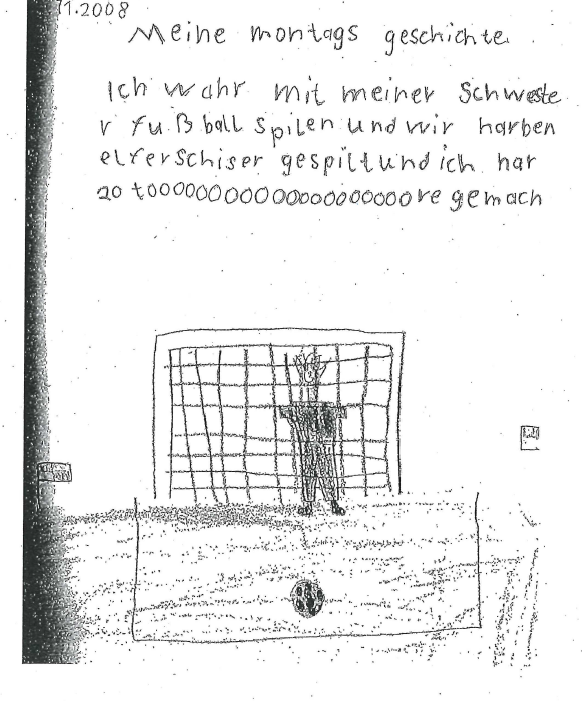 11.2008
Meine montags geschichte.
Ich wahr mit meiner Schweste
r fußball spilen und wir harben
elferschiser gespilt und ich har
20 toooooooooooooooooooore gemach